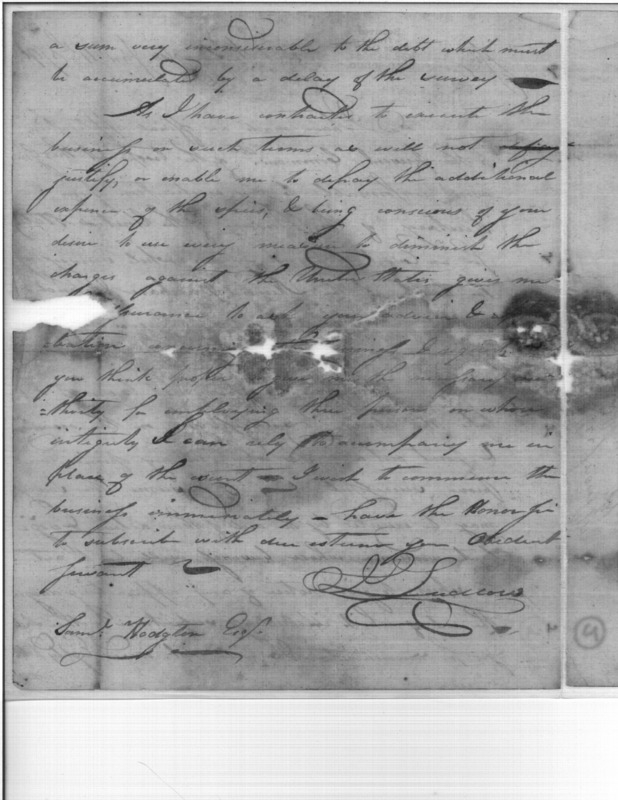 a sum very inconsiderable to the debt which must
be accumulated by a delay of the survey
As I have contracted to execute the
business on such terms as will not
justify, or enable me to defray the additional
expence of the spies, & being conscious of your
desire to use every measure to diminish the
charges against the United States gives me
to ask your advice &
you think proper
thority for employing three persons on whose
integrity I can rely to accompany me in
place of the escort - I wish to commence the
business immediately - have the Honor Sir
to subscribe with due esteem your Obedient
Servant
I Ludlow
Saml. Hodgdon Esqr.
9